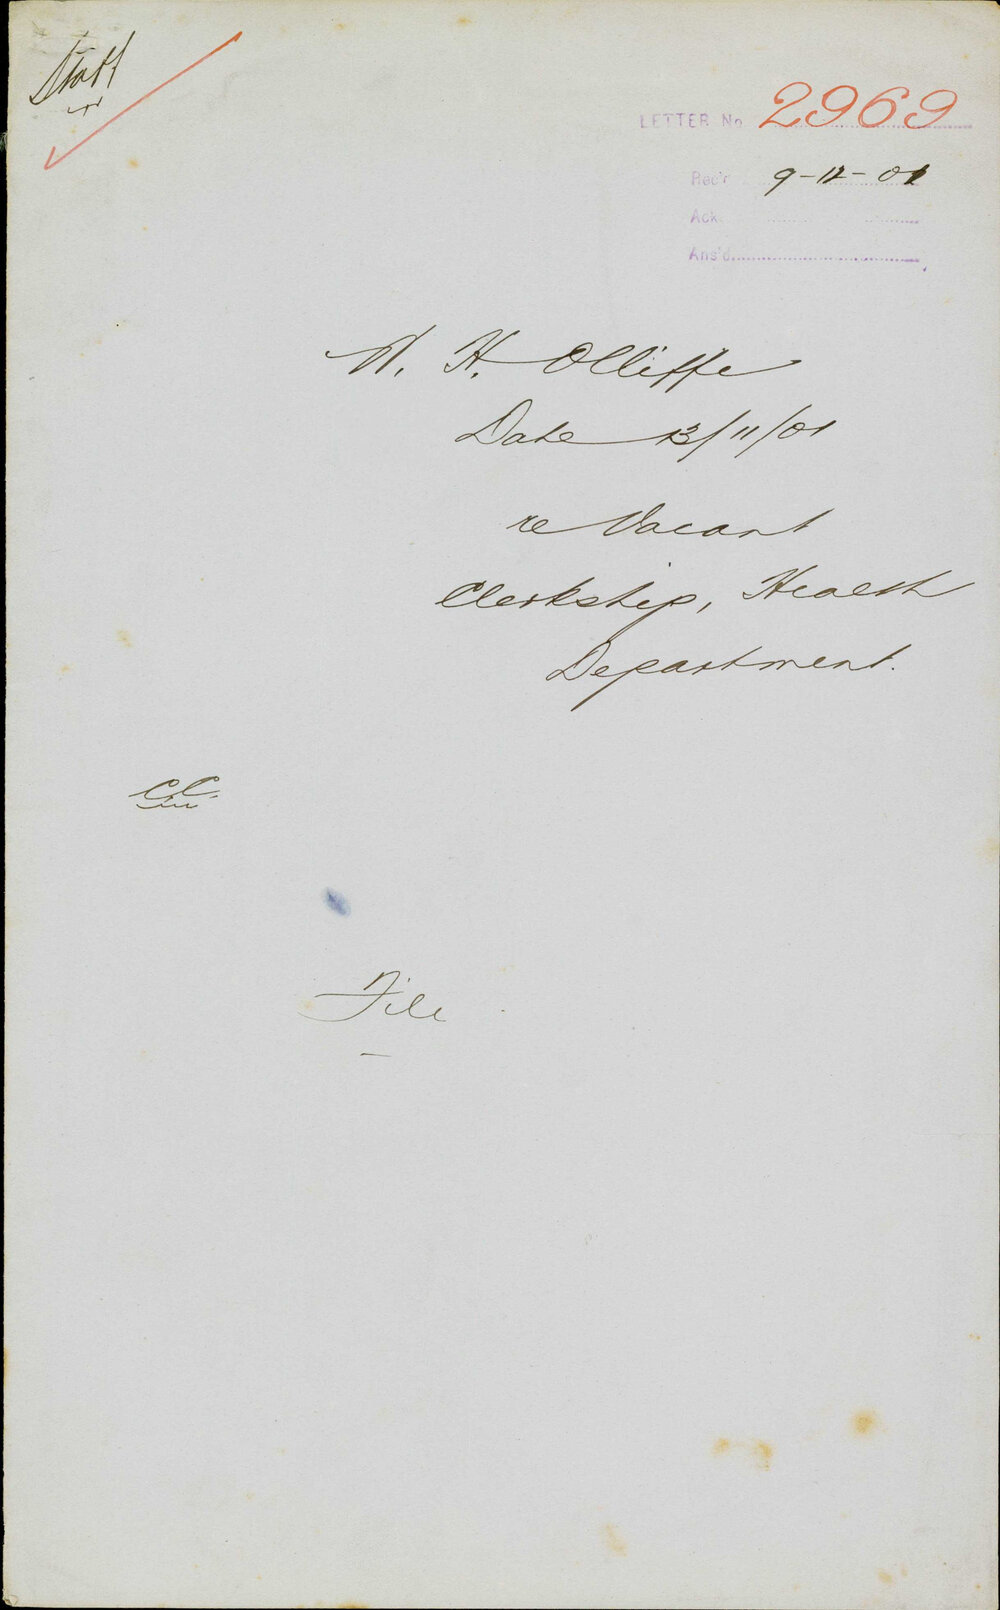 Staff
LETTER No 2969
Rec'd 9-12-01
Ack.
Ans'd
H. Olliffe
Date 13/11/01
re Vacant
Clerkship, Health
Department.
File